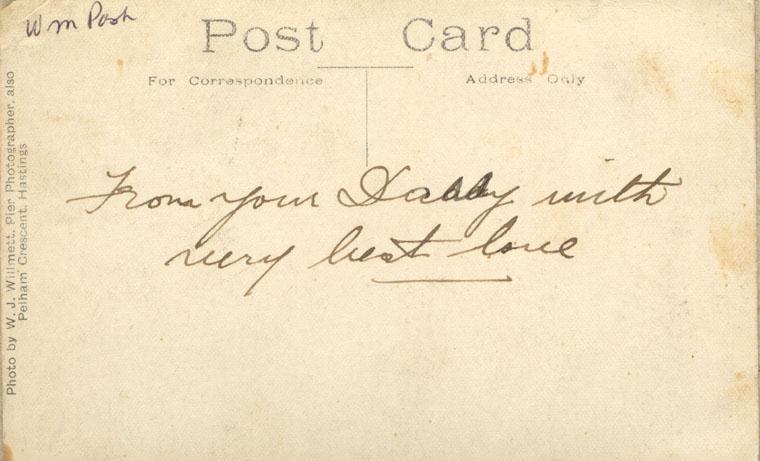 Wm Posh
Post Card
For Correspondence
Address Only
From your Daddy with
very best love
Photo by W. J. Willmett, Pier Photographer, also
Pelham Crescent, Hastings